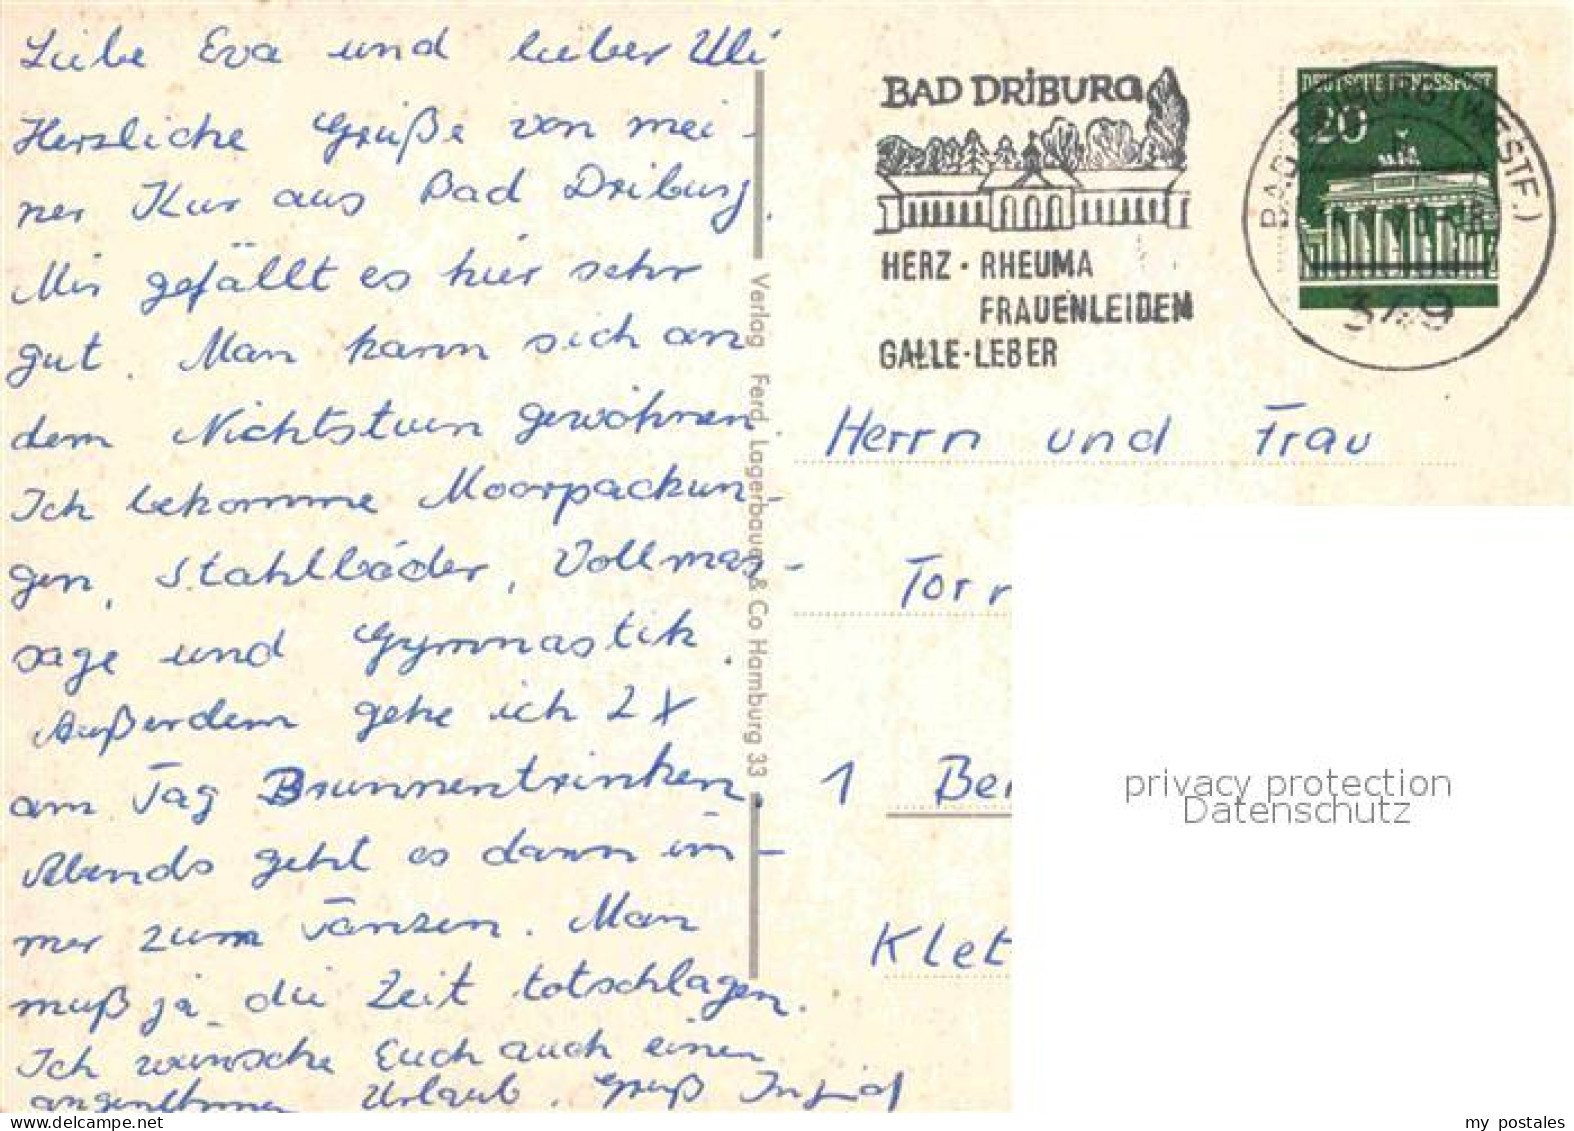 Liebe Eva und lieber Uli
Herzliche Grüße von mei-
ner Kur aus Bad Driburg.
Mir gefällt es hier sehr
gut. Man kann sich an
dem Nichtstuen gewöhnen.
Ich bekomme Moorpackun-
gen, Stahlbäder, Vollmas-
sage und Gymnastik.
Außerdem gehe ich 2 X
am Tag Brunnentrinken.
Abends geht es dann im-
mer zum Tanzen. Man
muß ja die Zeit totschlagen.
Ich wünsche Euch auch einen
angenehmen Urlaub. Gruß Ingrid
Verlag Ferd. Lagerbauer & Co Hamburg 33
BAD DRIBURG
HERZ · RHEUMA
FRAUENLEIDEN
GALLE · LEBER
DEUTSCHE BUNDESPOST
20
BAD DRIBURG (WESTF.)
349
Herrn und Frau
Torr
1 Ber
Klet
privacy protection
Datenschutz
my postales